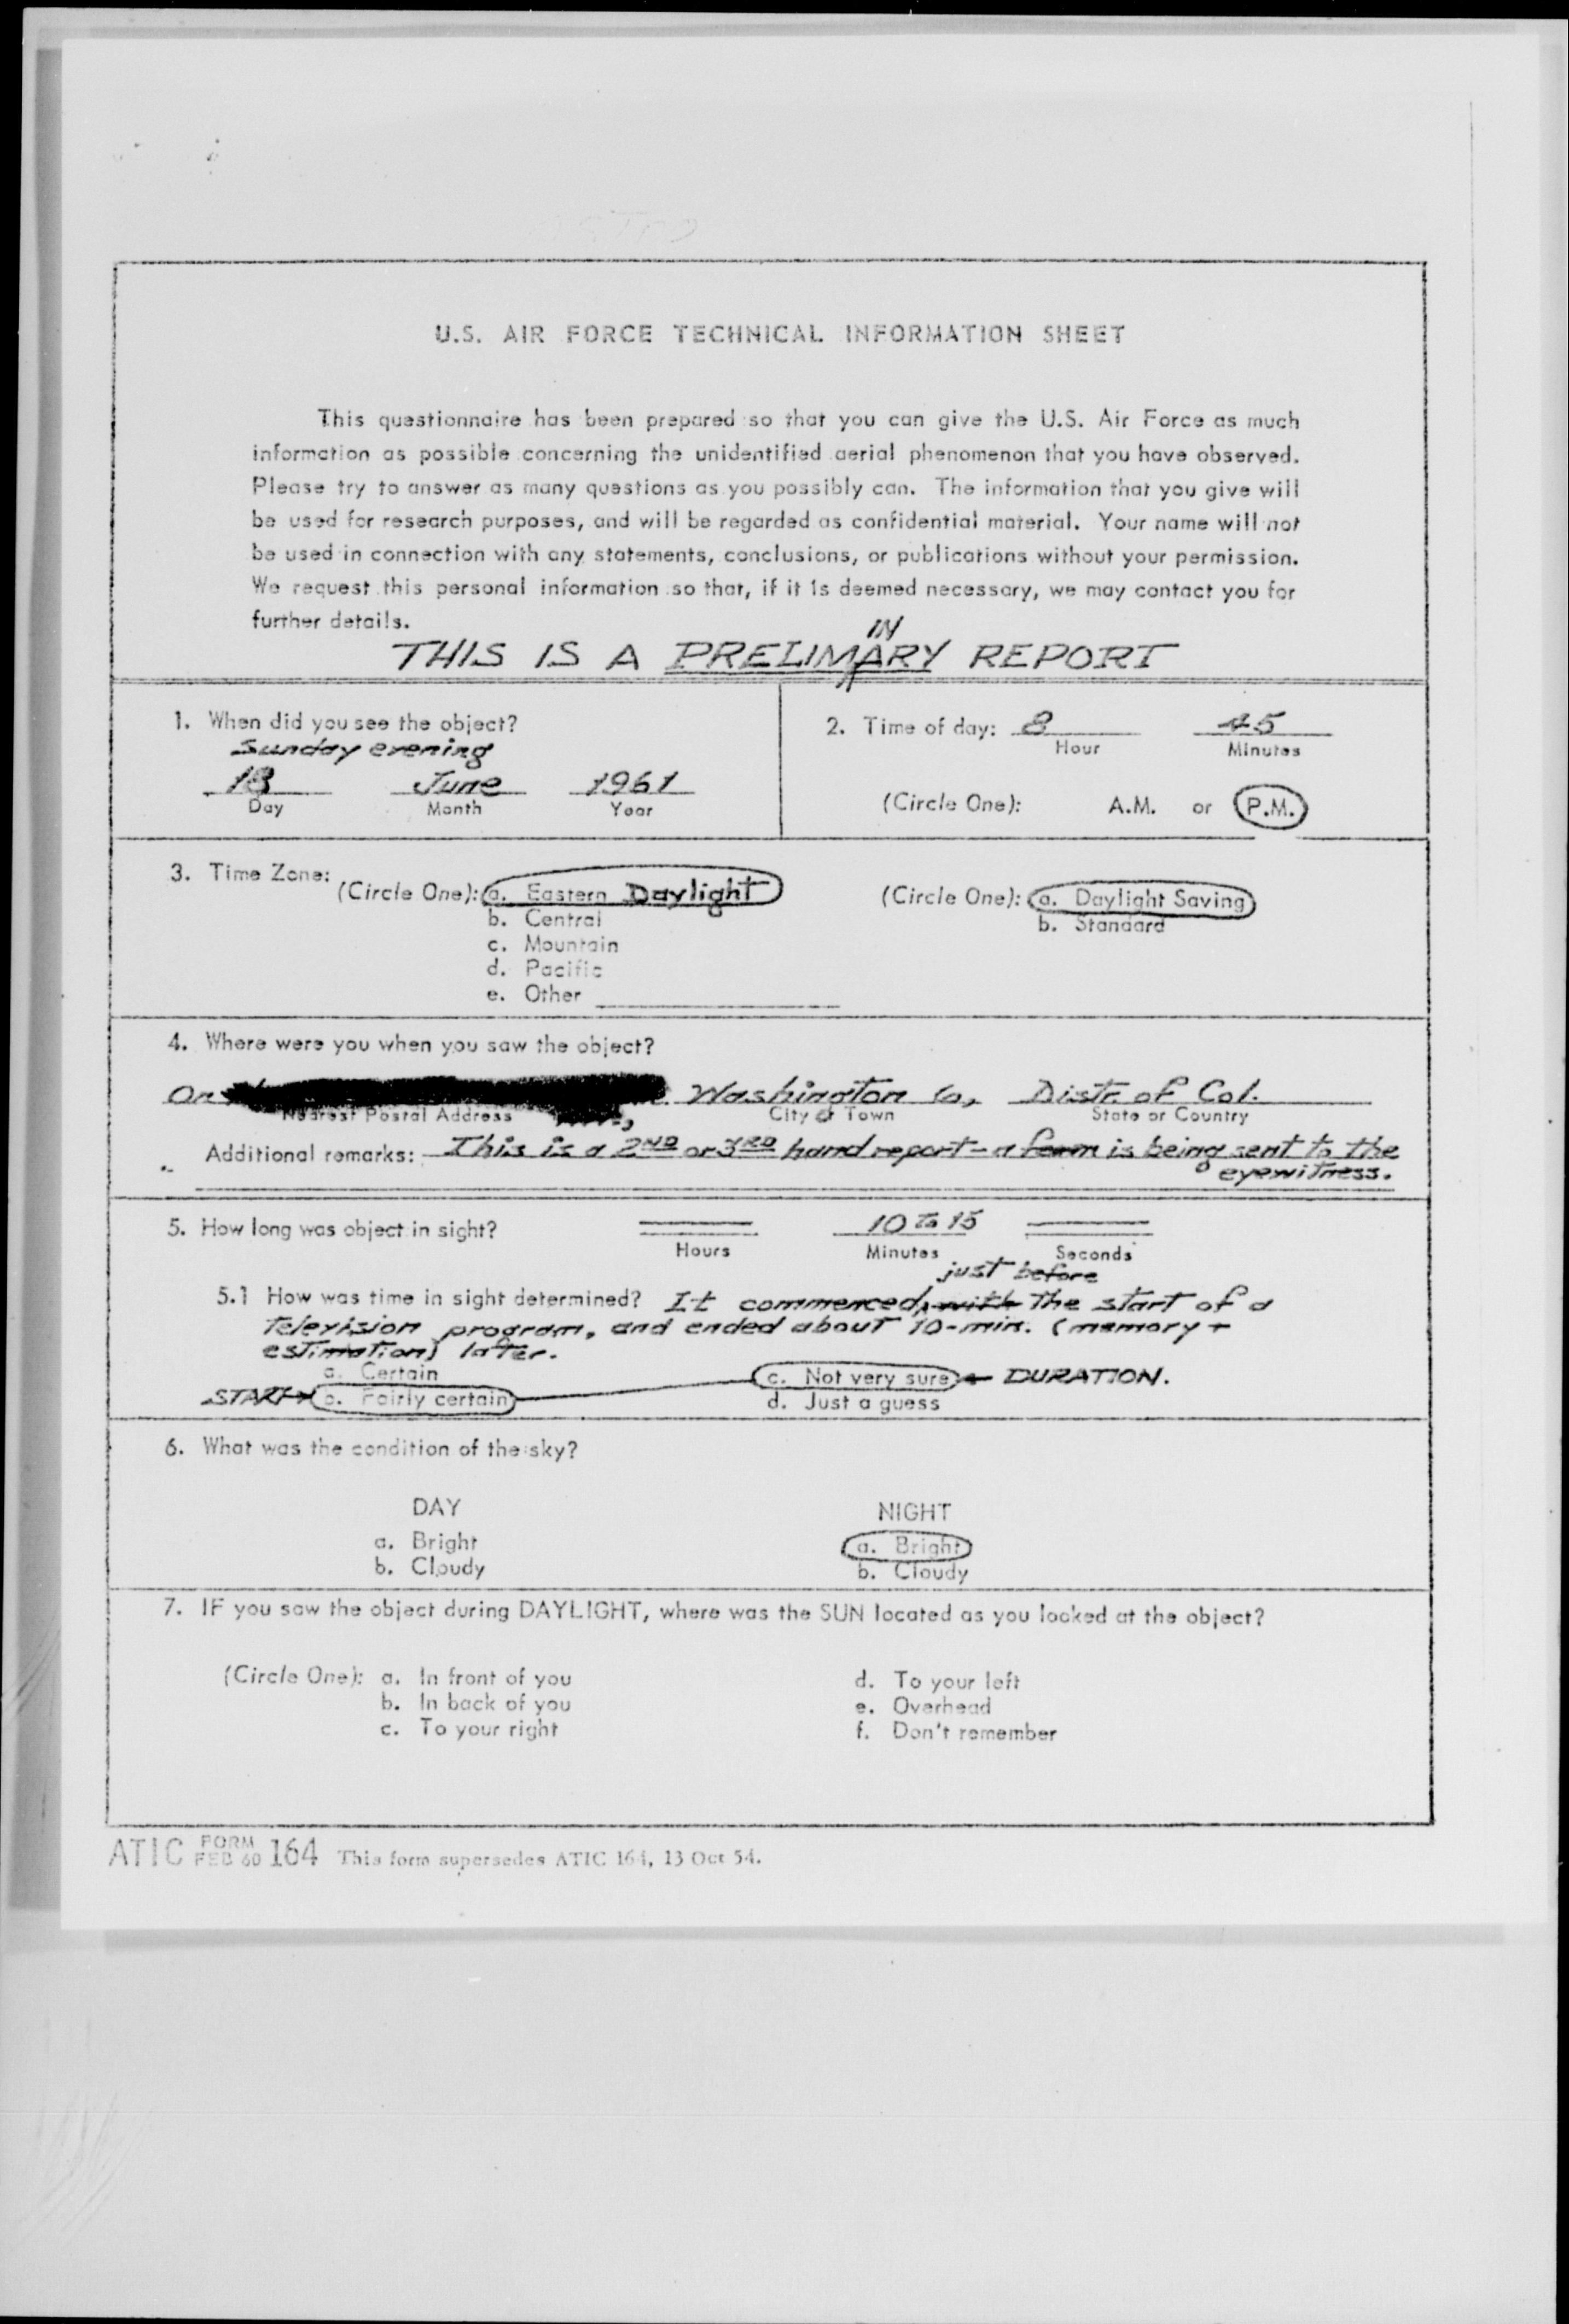 U.S. AIR FORCE TECHNICAL INFORMATION SHEET
This questionnaire has been prepared so that you can give the U.S. Air Force as much
information as possible concerning the unidentified aerial phenomenon that you have observed.
Please try to answer as many questions as you possibly can. The information that you give will
be used for research purposes, and will be regarded as confidential material. Your name will not
be used in connection with any statements, conclusions, or publications without your permission.
We request this personal information so that, if it is deemed necessary, we may contact you for
further details.
IN
THIS IS A PRELIMARY REPORT
1. When did you see the object?
Sunday evening
18 June 1961
Day Month Year
2. Time of day: 8 45
Hour Minutes
(Circle One): A.M. or P.M.
3. Time Zone:
(Circle One): a. Eastern Daylight
b. Central
c. Mountain
d. Pacific
e. Other
(Circle One): a. Daylight Saving
b. Standard
4. Where were you when you saw the object?
On Washington Distr. of Col.
Nearest Postal Address City or Town State or Country
Additional remarks: This is a 2ND or 3RD hand report - a form is being sent to the
eyewitness.
5. How long was object in sight? 10 to 15
Hours Minutes Seconds
just before
5.1 How was time in sight determined? It commenced, with the start of a
television program, and ended about 10-min. (memory +
estimation) later.
a. Certain
START→ b. Fairly certain
c. Not very sure ← DURATION.
d. Just a guess
6. What was the condition of the sky?
DAY
a. Bright
b. Cloudy
NIGHT
a. Bright
b. Cloudy
7. IF you saw the object during DAYLIGHT, where was the SUN located as you looked at the object?
(Circle One): a. In front of you
b. In back of you
c. To your right
d. To your left
e. Overhead
f. Don't remember
ATIC FORM FEB 60 164 This form supersedes ATIC 164, 13 Oct 54.